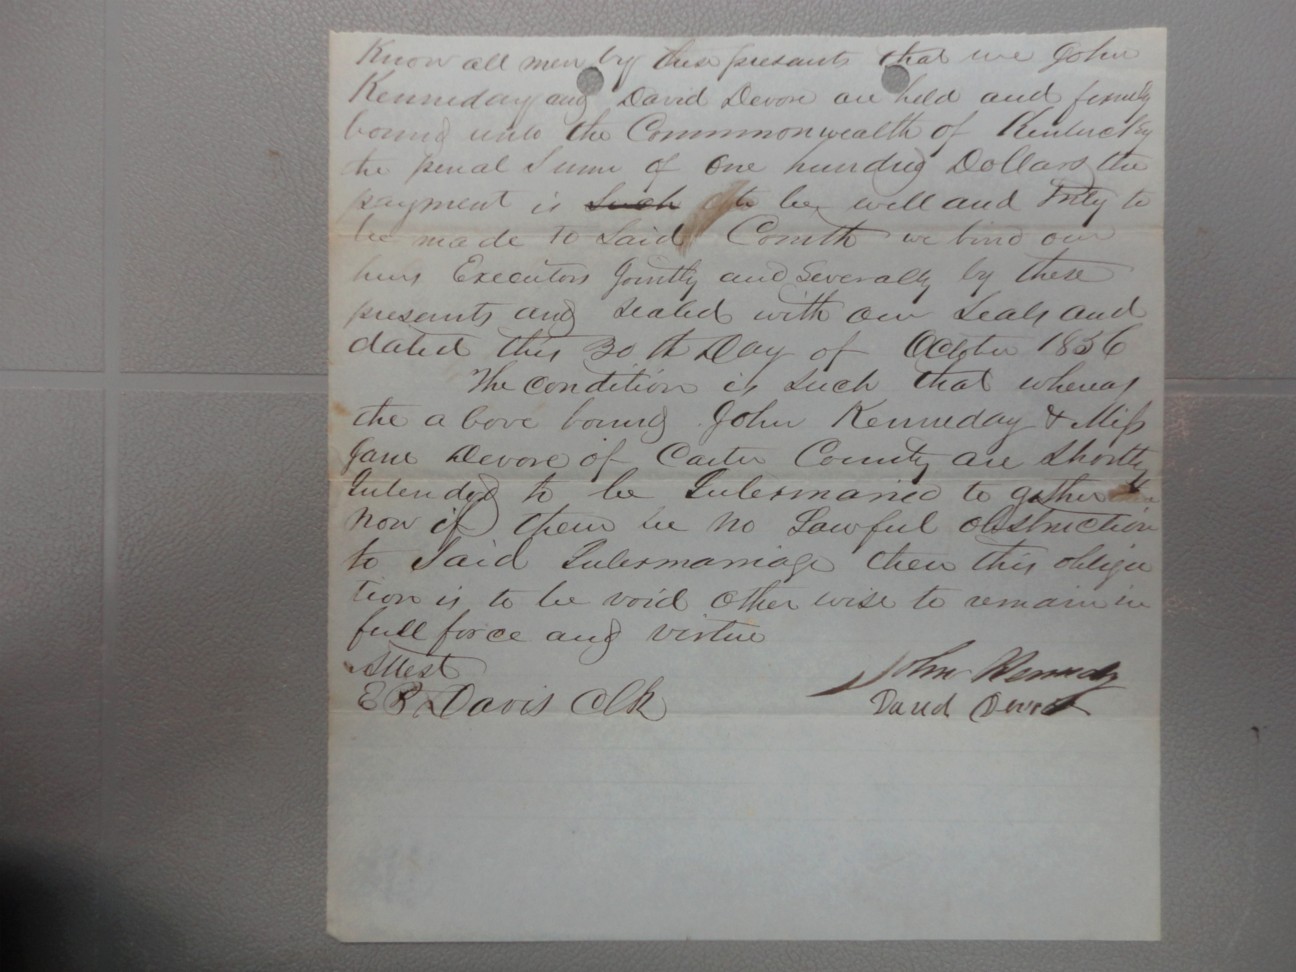 Know all men by these presents that we John
Kenneday and David Devore are held and firmly
bound unto the Commmonwealth of Kentucky
the penal Sum of One hundred Dollars the
payment is such to be well and truly to
be made to Said Comth we bind our
heirs Executors Jointly and Severally by these
presents and sealed with our Seals and
dated this 30th Day of October 1856
The condition is such that whereas
the above bound John Kenneday & Miss
Jane Devore of Carter County are shortly
Intended to be Intermarried to gether
now if there be no Lawful obstruction
to Said Intermarriage then this obliga
tion is to be void other wise to remain in
full force and virtue
Attest
E B Davis Clk
John Kennedy
David Devore